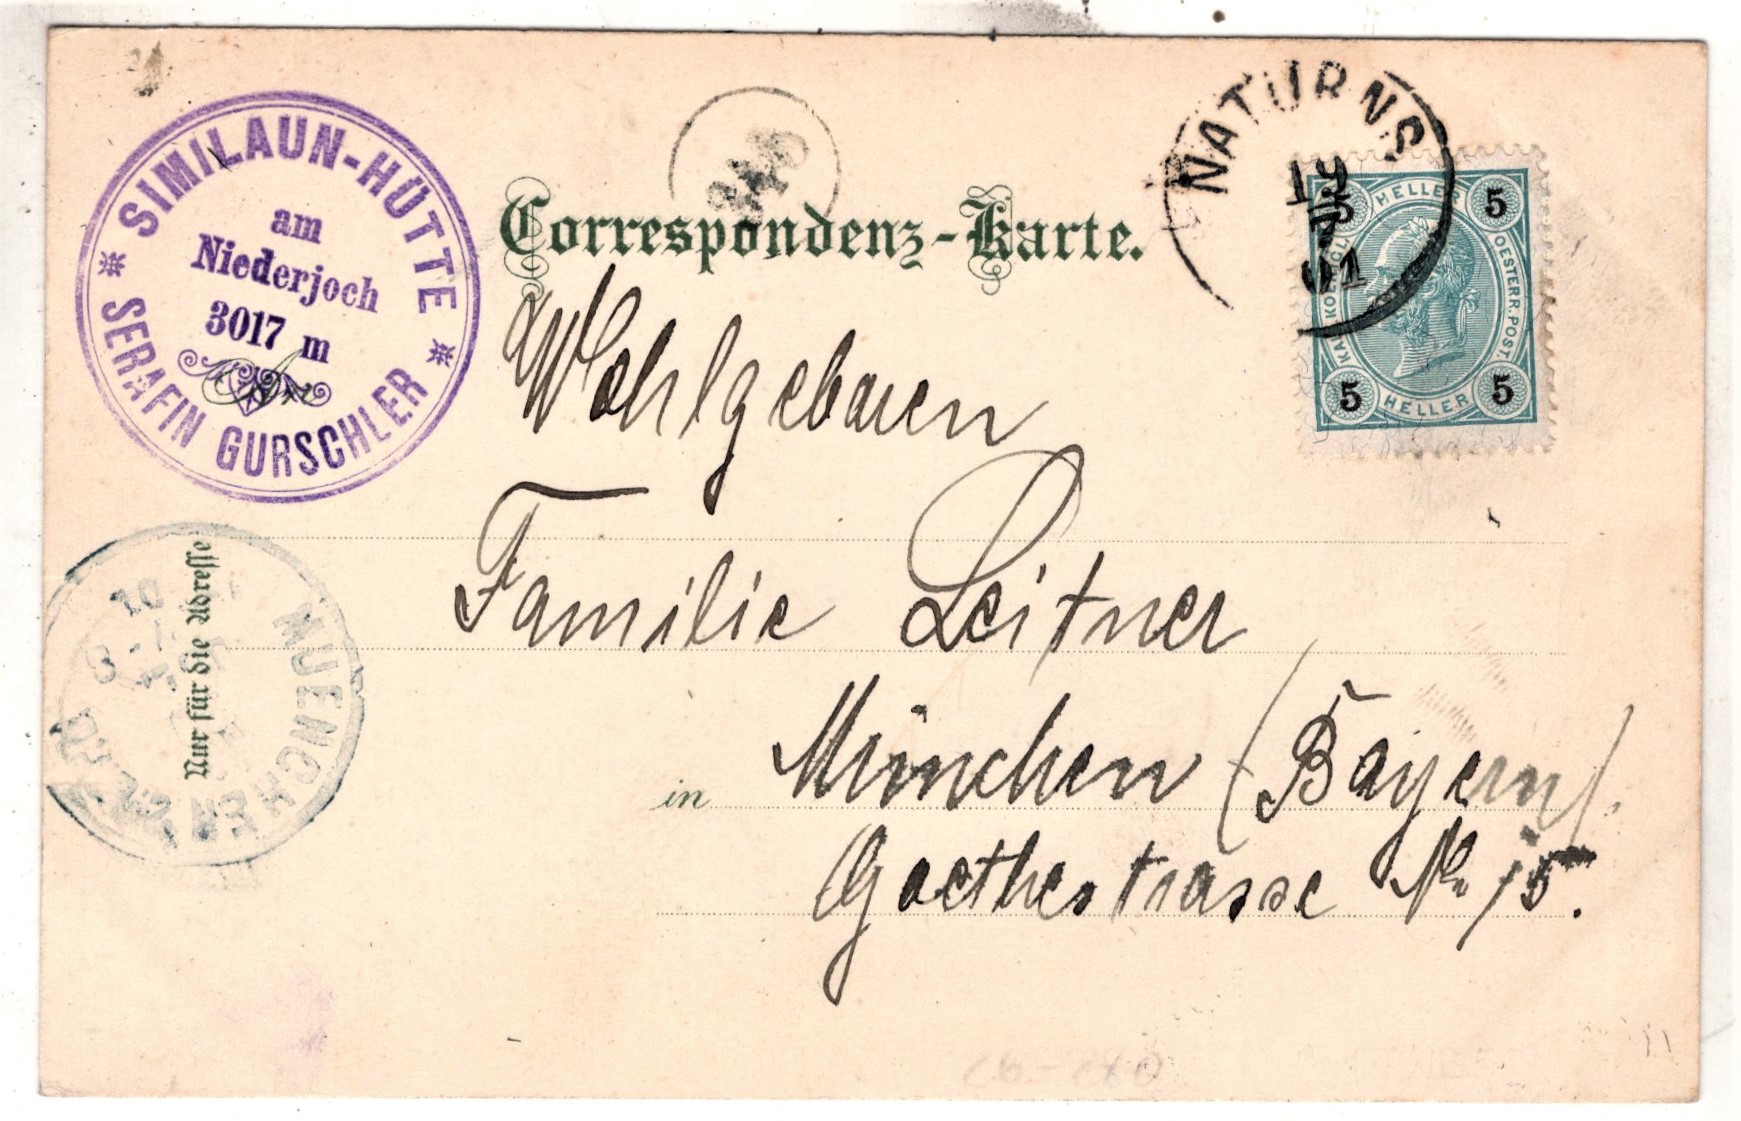 SIMILAUN-HÜTTE
am
Niederjoch
3017 m
SERAFIN GURSCHLER
Correspondenz-Karte.
NATURNS
19
7
01
5 HELLER 5
KAIS. KÖNIGL.
OESTERR. POST.
5 HELLER 5
Wohlgeboren
Familie Leitner
in München (Bayern).
Goethestrasse No 15.
Nur für die Adresse
MUENCHEN